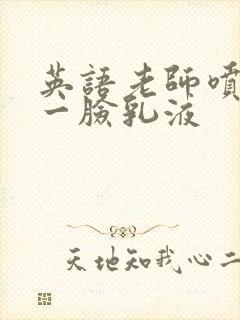 英語老師噴
一臉乳液
天地知我心二